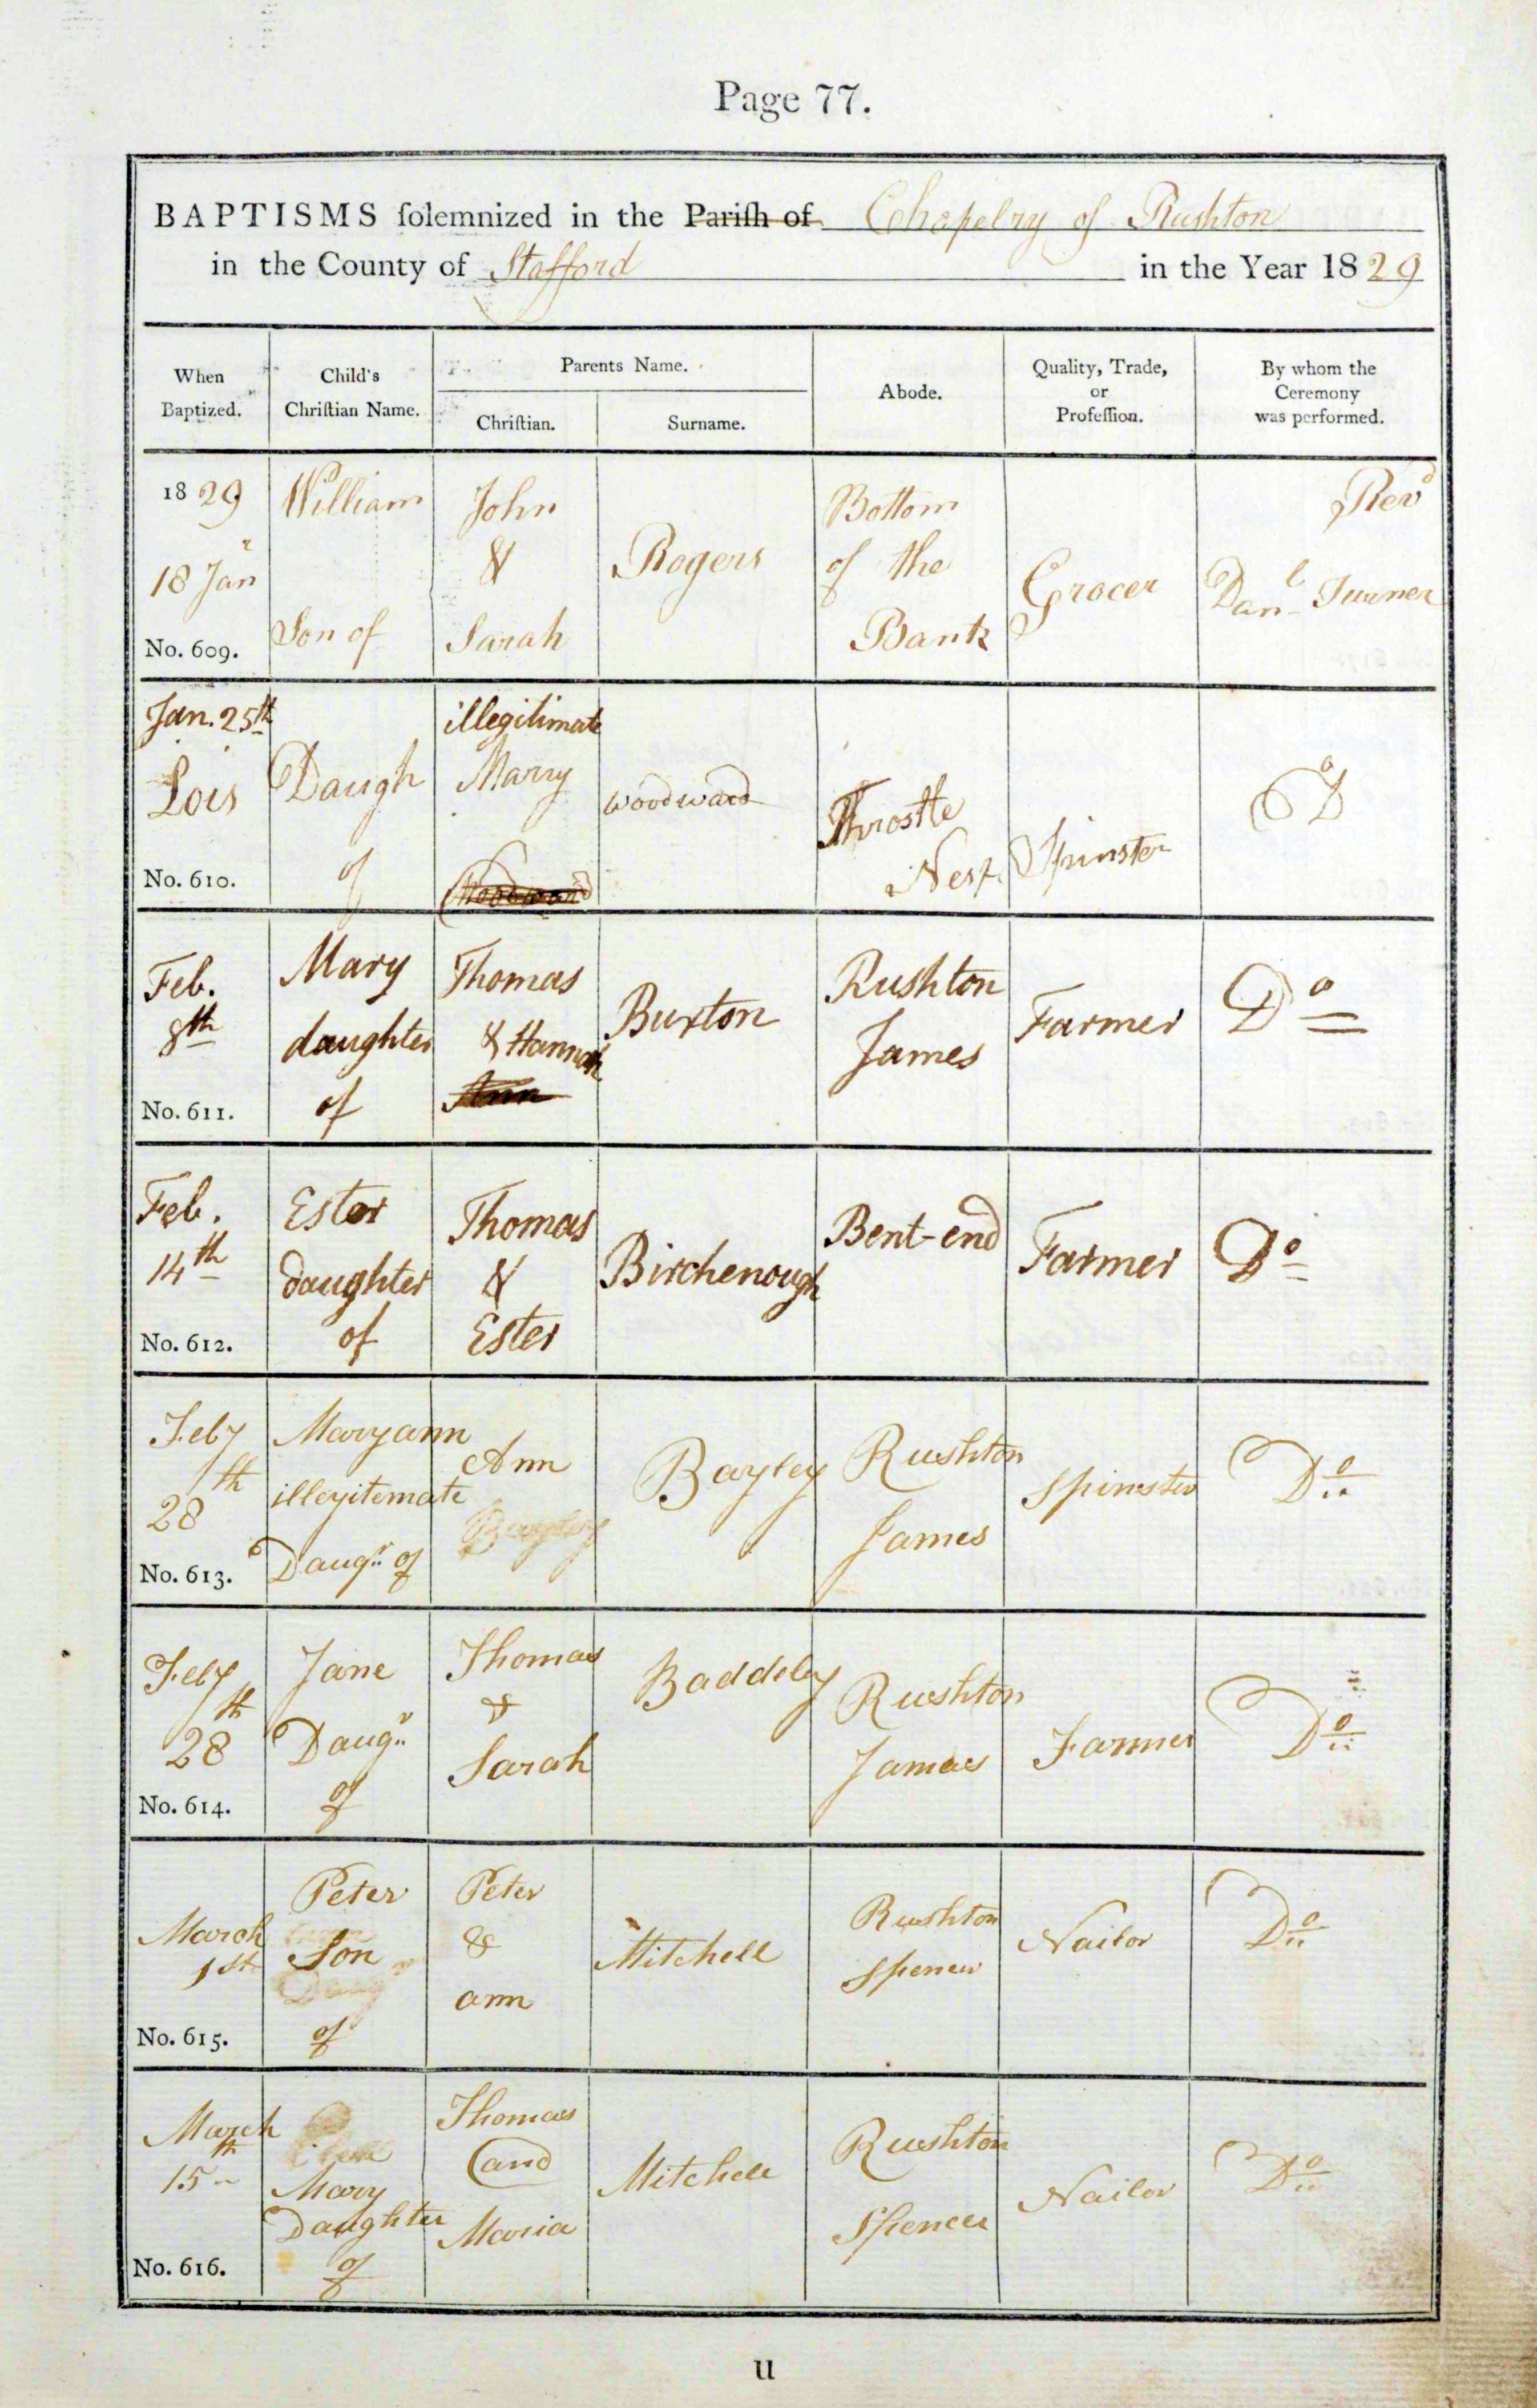 Page 77.
BAPTISMS ſolemnized in the Pariſh of Chapelry of Rushton
in the County of Stafford in the Year 1829
When Baptized.
Child's Chriſtian Name.
Parents Name.
Chriſtian.
Surname.
Abode.
Quality, Trade, or Profeſſion.
By whom the Ceremony was performed.
1829
18 Janr
No. 609.
William
Son of
John
&
Sarah
Rogers
Bottom
of the
Bank
Grocer
Revd
Danl Turner
Jan. 25th
Lois
No. 610.
Daugh
of
illegitimate
Marry
Woodward
woodward
Throstle
Nest
Spinster
Do
Feb.
8th
No. 611.
Mary
daughter
of
Thomas
& Hannah
Ann
Buxton
Rushton
James
Farmer
Do
Feb.
14th
No. 612.
Ester
daughter
of
Thomas
&
Ester
Birchenough
Bent-end
Farmer
Do
Feby
28th
No. 613.
Maryann
illegitemate
Daugr of
Ann
Bayley
Bayley
Rushton
James
Spinster
Do
Feby
28th
No. 614.
Jane
Daugr
of
Thomas
&
Sarah
Baddeley
Rushton
James
Farmer
Do
March
1st
No. 615.
Peter
Son
Daug
of
Peter
&
ann
Mitchell
Rushton
Spencer
Nailor
Do
March
15th
No. 616.
Mary
Daughter
of
Thomas
and
Maria
Mitchell
Rushton
Spencer
Nailor
Do
u